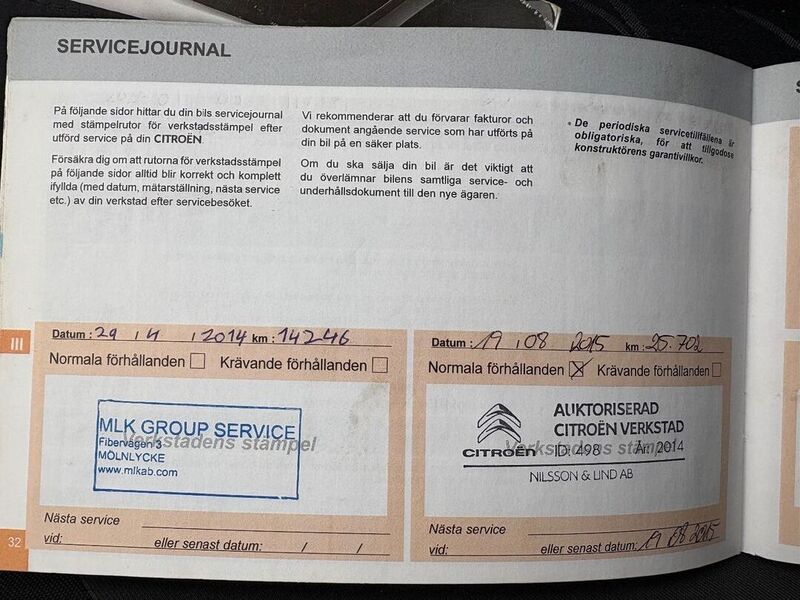 SERVICEJOURNAL
På följande sidor hittar du din bils servicejournal
med stämpelrutor för verkstadsstämpel efter
utförd service på din CITROËN.
Försäkra dig om att rutorna för verkstadsstämpel
på följande sidor alltid blir korrekt och komplett
ifyllda (med datum, mätarställning, nästa service
etc.) av din verkstad efter servicebesöket.
Vi rekommenderar att du förvarar fakturor och
dokument angående service som har utförts på
din bil på en säker plats.
Om du ska sälja din bil är det viktigt att
du överlämnar bilens samtliga service- och
underhållsdokument till den nye ägaren.
• De periodiska servicetillfällena är
obligatoriska, för att tillgodose
konstruktörens garantivillkor.
III
Datum : 29 / 4 / 2014 km : 14246
Normala förhållanden Krävande förhållanden
MLK GROUP SERVICE
Verkstadens stämpel
Fibervägen 3
MÖLNLYCKE
www.mlkab.com
Nästa service
vid: eller senast datum: / /
Datum : 19 / 08 2015 km : 25.702
Normala förhållanden X Krävande förhållanden
AUKTORISERAD
CITROËN VERKSTAD
Verkstadens stämpel
CITROËN ID: 498 År: 2014
NILSSON & LIND AB
Nästa service
vid: eller senast datum: 19 08 2015
32